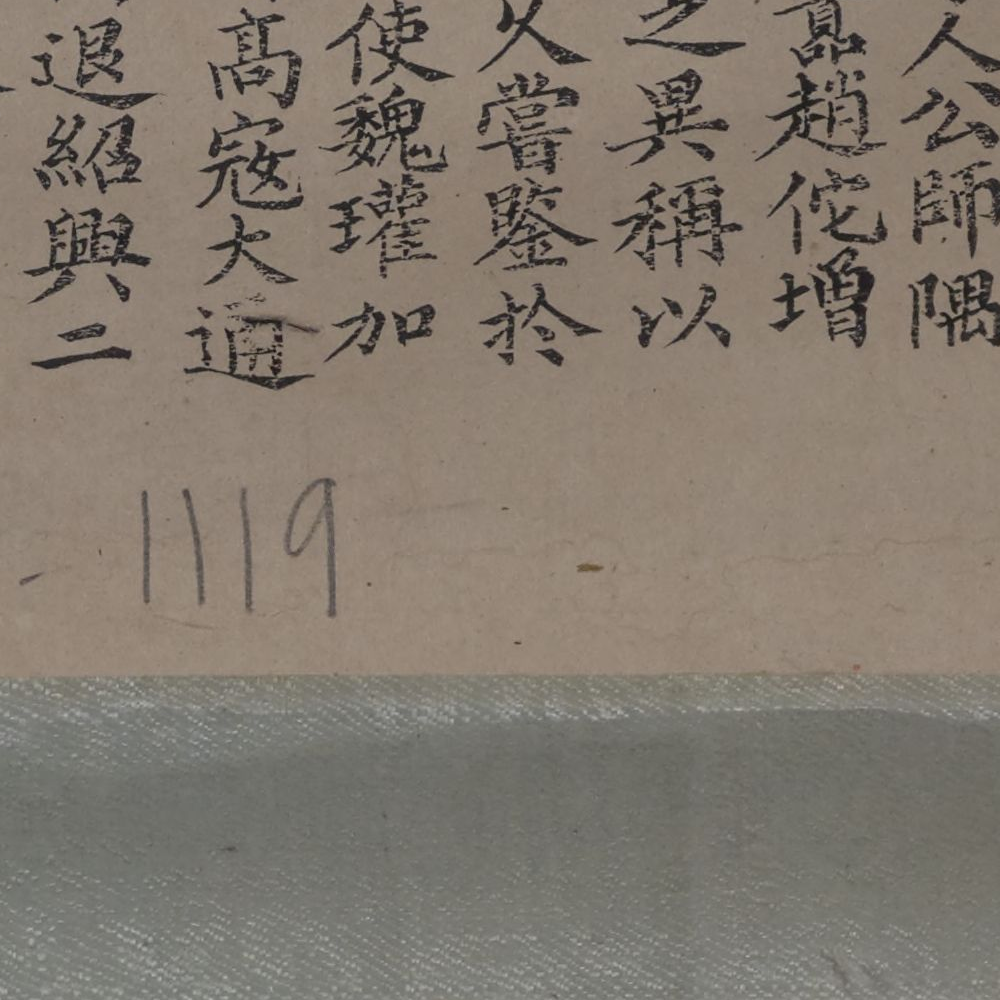 人公師隅
趙佗增
之異稱以
嘗鑒於
使魏瓘加
高寇大通
退紹興二
1119